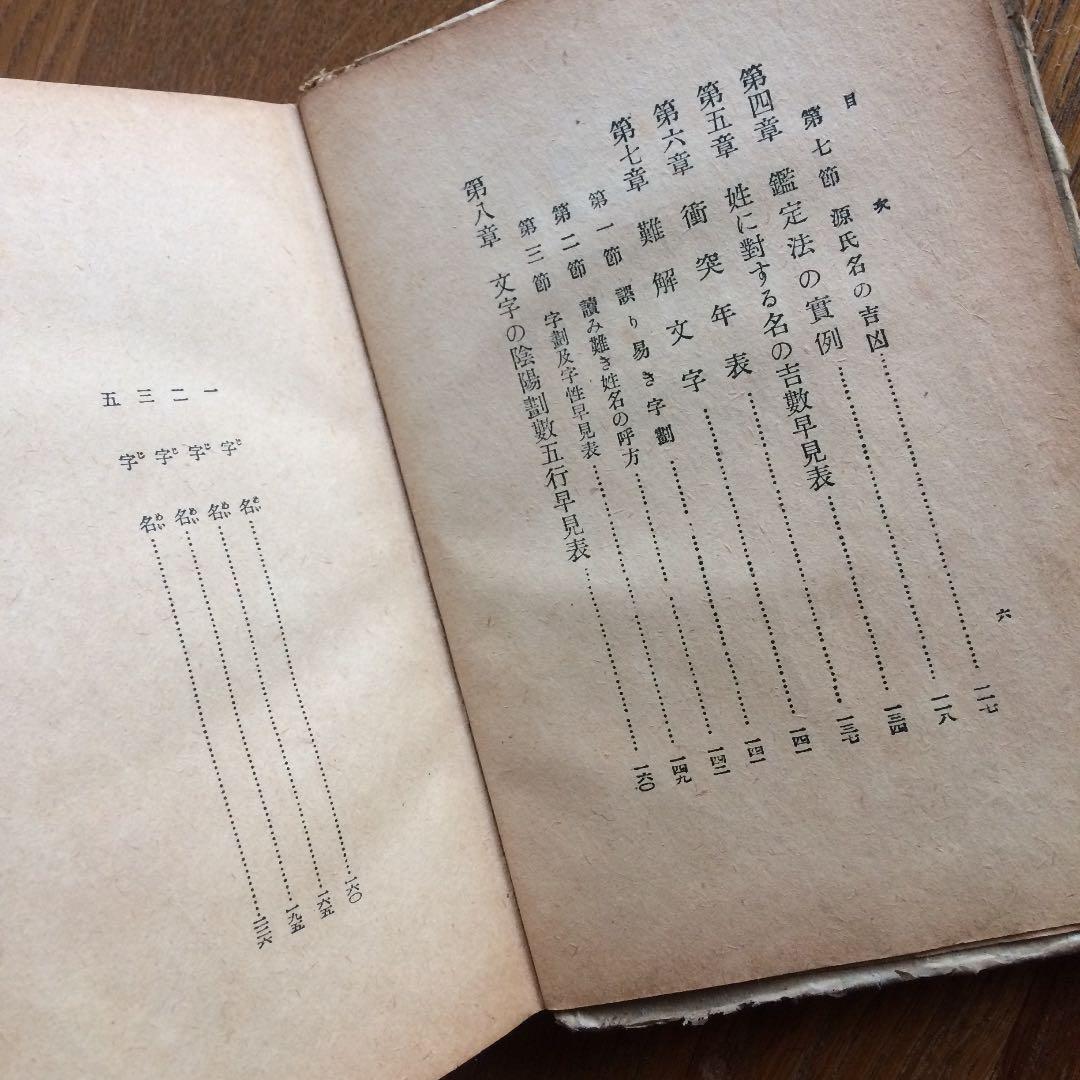 目次 六
第七節 源氏名の吉凶……一一七
第四章 鑑定法の實例……一一八
第五章 姓に對する名の吉數早見表……一三四
第六章 衝突年表……一三七
第七章 難解文字……一四一
第一節 誤り易き字劃……一四一
第二節 讀み難き姓名の呼方……一四二
第三節 字劃及字性早見表……一四九
第八章 文字の陰陽劃數五行早見表……一六〇
一字名……一六〇
二字名……一六五
三字名……一九五
五字名……二三六